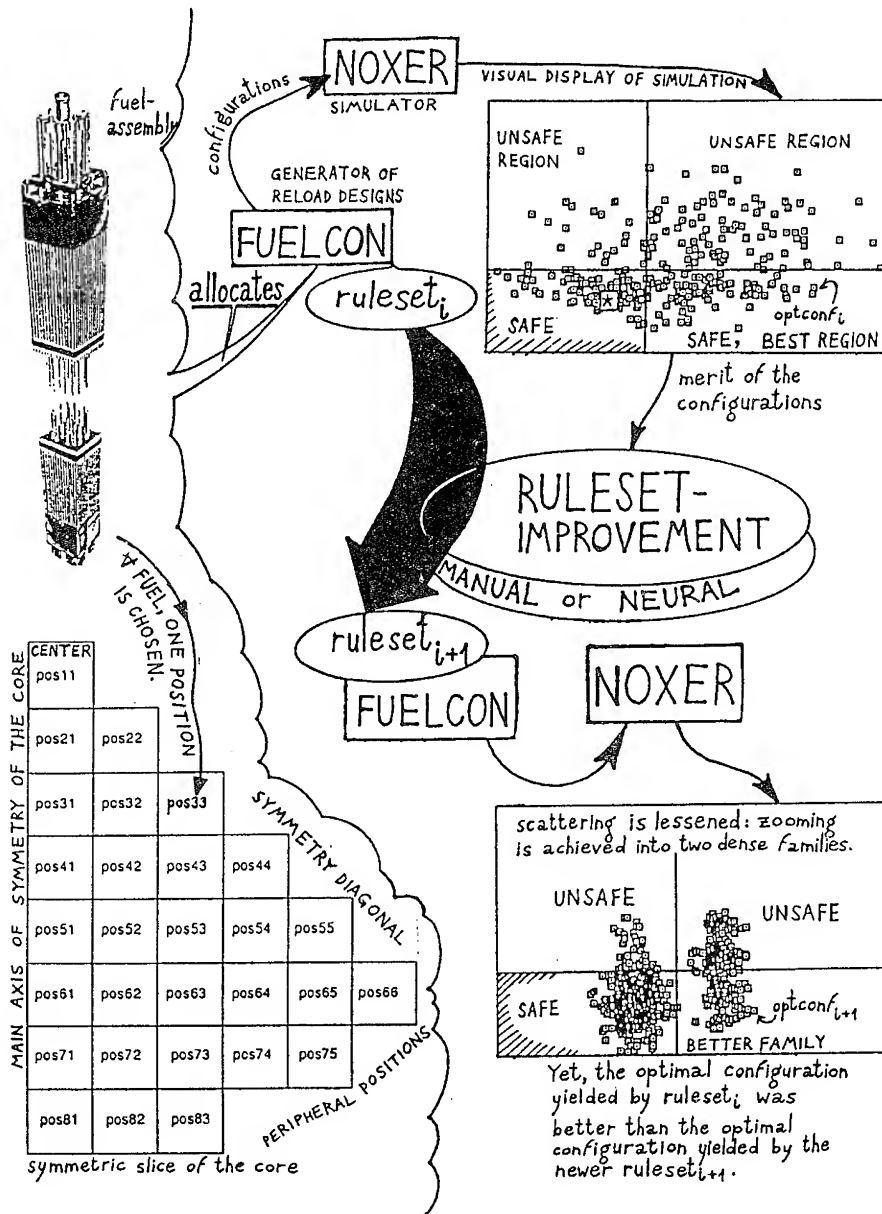 fuel-
assembly
configurations
NOXER
SIMULATOR
VISUAL DISPLAY OF SIMULATION
UNSAFE
REGION
UNSAFE REGION
SAFE
*
optconf i
SAFE, BEST REGION
GENERATOR OF
RELOAD DESIGNS
FUELCON
allocates
ruleset i
merit of the
configurations
RULESET-
IMPROVEMENT
MANUAL or NEURAL
ruleset i+1
FUELCON
NOXER
∀ FUEL, ONE POSITION
IS CHOSEN.
MAIN AXIS OF SYMMETRY OF THE CORE
CENTER
pos11
pos21 pos22
pos31 pos32 pos33
pos41 pos42 pos43 pos44
pos51 pos52 pos53 pos54 pos55
pos61 pos62 pos63 pos64 pos65 pos66
pos71 pos72 pos73 pos74 pos75
pos81 pos82 pos83
SYMMETRY DIAGONAL
PERIPHERAL POSITIONS
symmetric slice of the core
scattering is lessened: zooming
is achieved into two dense families.
UNSAFE
UNSAFE
SAFE
optconf i+1
BETTER FAMILY
Yet, the optimal configuration
yielded by ruleset i was
better than the optimal
configuration yielded by the
newer ruleset i+1.